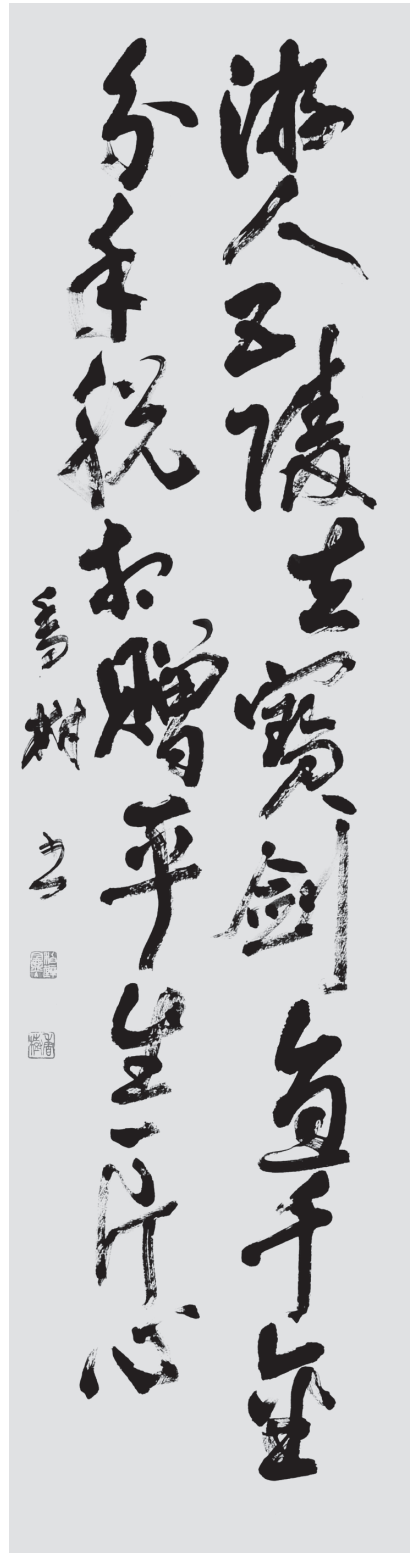 游人五陵去寶劍直千金
分手脱相贈平生一片心
香樹书